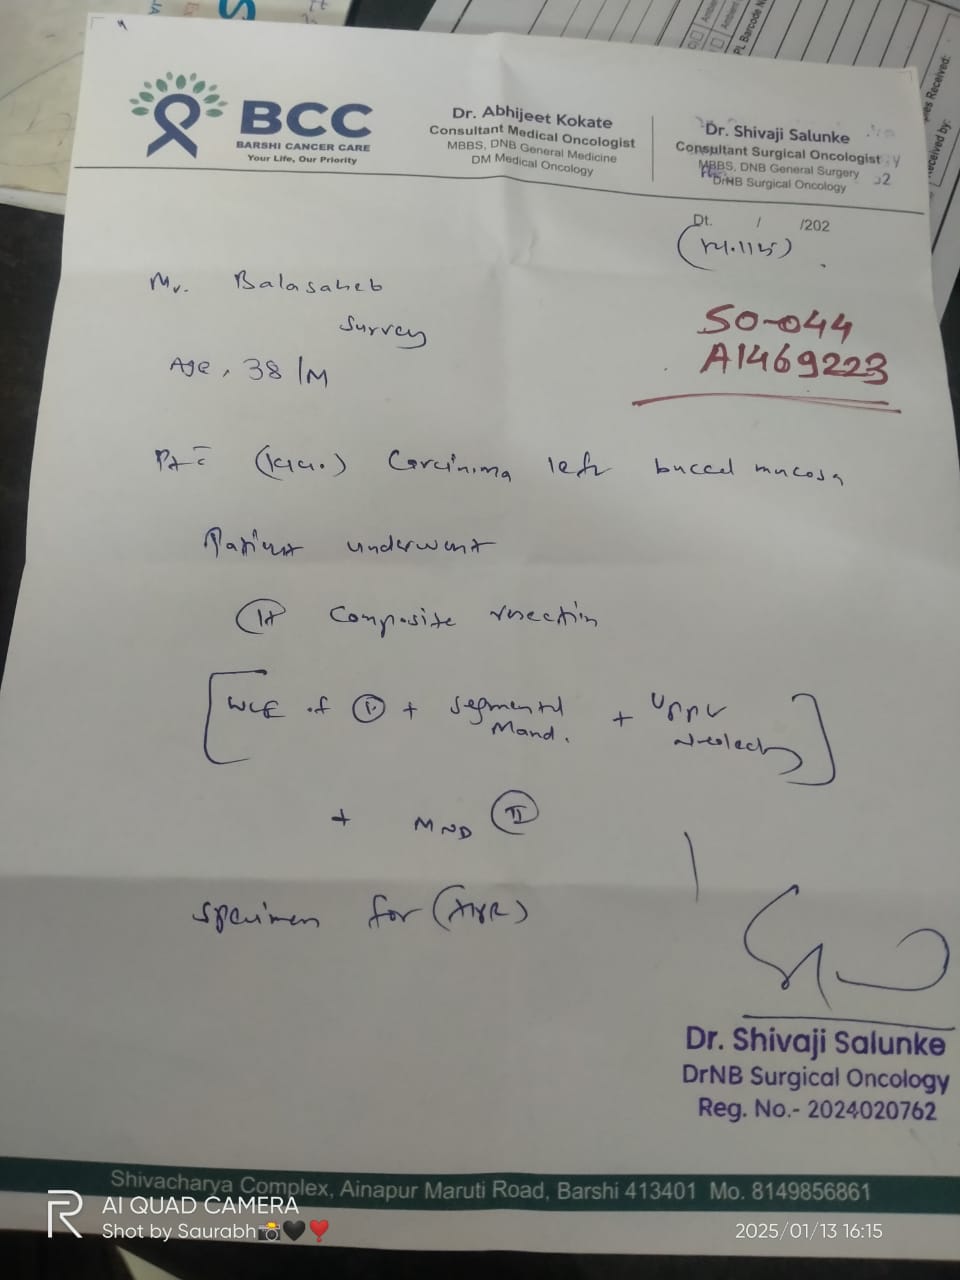 BCC
BARSHI CANCER CARE
Your Life, Our Priority
Dr. Abhijeet Kokate
Consultant Medical Oncologist
MBBS, DNB General Medicine
DM Medical Oncology
Dr. Shivaji Salunke
Consultant Surgical Oncologist
MBBS, DNB General Surgery
DrNB Surgical Oncology
PL Barcode
Received:
eceived by:
Dt. / /202
Mr. Balasaheb
Survey
Age, 38/M
SO-044
A1469223
Carcinima left buccal mucosa
Patient underwent
Composite resection
WLE of + Segmental Mand. + Upper
+ MND II
Specimen for
Dr. Shivaji Salunke
DrNB Surgical Oncology
Reg. No.- 2024020762
Shivacharya Complex, Ainapur Maruti Road, Barshi 413401 Mo. 8149856861
AI QUAD CAMERA
Shot by Saurabh📸🖤❣️
2025/01/13 16:15